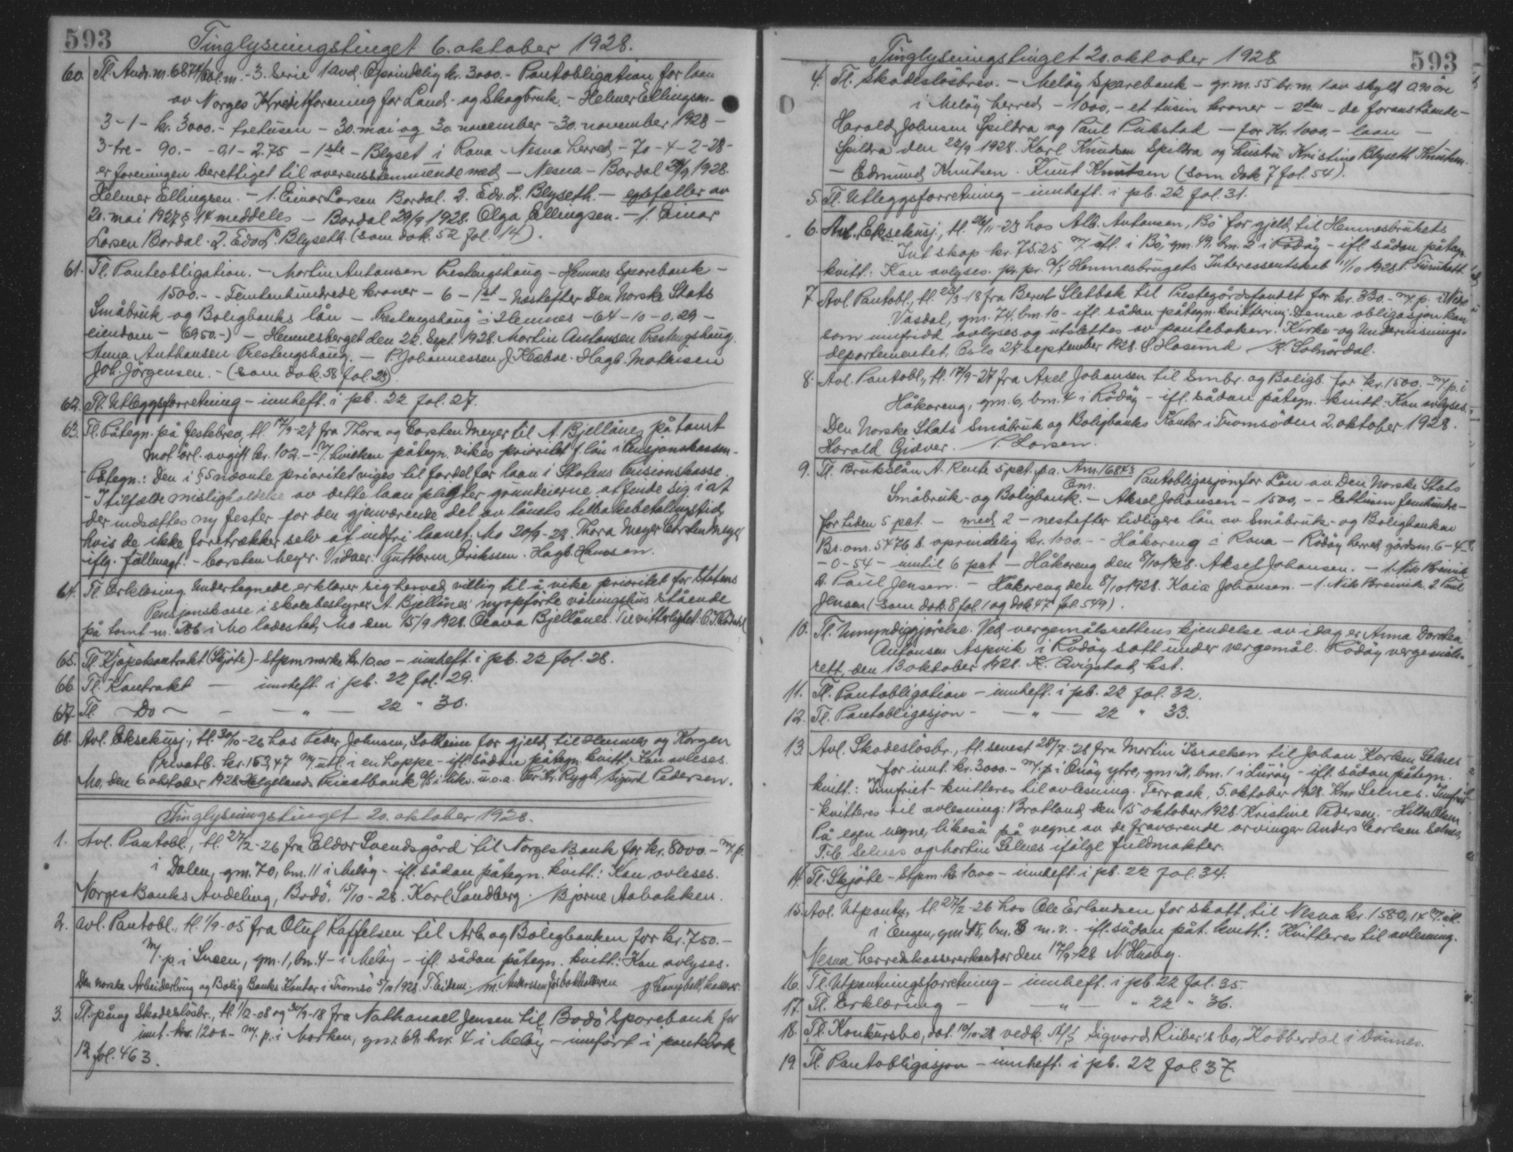 593
Tinglysningstinget 6. oktober 1928.
60. Tl. Andr. nr. 6874 - 3. Serie 1 avd. Oprindelig kr. 3000.- Pantobligation for laan
av Norges Kreditforening for Land- og Skogbruk. - Helmer Ellingsen -
3 - 1 - kr. 3000.- tretusen - 30. mai og 30 november - 30. november 1928 -
3 - tre - 90.- - 0,1 - 2.75 - 1ste - Blyset i Rana - Nesna herred - 70 - 4 - 2-28-
er foreningen berettiget til overensstemmende med - Nesna - Bardal 29/9 1928.
Helmer Ellingsen. - 1. Einar Larsen Bardal. 2. Edv. L. Blyseth. - egtefæller av
20. mai 1927 § 14 meddeles - Bardal 29/9 1928. Olga Ellingsen. - 1. Einar
Larsen Bardal. 2. Edv. L. Blyseth. (som dok. 52 fol. 14).
61. Tl. Panteobligation. - Martin Antonsen Prestengshaug - Hemnes Sparebank -
1500.- - Femtenhundrede kroner - 6 - 1st - Nestefter Den Norske Stats
Småbruk og Boligbanks lån - Prestengshaug i Hemnes - 64 - 10 - 0.29 -
eiendom - (6950.-) - Hemnesberget den 22. Sept. 1928. Martin Antonsen Prestengshaug.
Anna Anthonsen Prestengshaug. - P. Johannessen J. Hagb. Mathisen
Joh. Jørgensen. - (som dok. 58 fol. 23).
62. Tl. Utleggsforretning - innheft. i pb. 22 fol. 27.
63. Tl. Påtegn. på festebrev, tl. 17/9-27 fra Thora og Carsten Meyer til A. Bjellånes på tomt
mot årl. avgift kr. 102.- - påtegn. vikes prioritet f. lån i Pensjonskassen -
Påtegn.: Den i § 5 nævnte prioritet viges til fordel for laan i Statens Pensionskasse.
- I tilfælde misligholdelse av dette laan pligter grundeierne at finde sig i at
der indsættes ny fester for den gjenværende del av lånets tilbakebetalingstid,
hvis de ikke foretrækker selv at indfri laanet. Mo 20/9-28. Thora Meyer Carsten Meyer
iflg. fullmagt. - Carsten Meyer. Vidner: Guttorm Erikssen. Hagb. Hanssen.
64. Tl. Erklæring. Undertegnede erklærer sig herved villig til å vike prioritet for Statens
Pensjonskasse i skolebestyrer A. Bjellånes nyopførte våningshus stående
på tomt nr. i Mo ladested, Mo den 15/9 1928. Olava Bjellånes. Til vitterlighet:
65. Tl. Kjøpekontrakt (Skjøte) - Stpm merke kr. 10.00 - innheft. i pb. 22 fol. 28.
66. Tl. Kontrakt - innheft. i pb. 22 fol. 29.
67. Tl. - Do - - - " - 22 " 30.
68. Avl. Eksekusj., tl. 30/10-26 hos Peder Johnsen, Solheim for gjeld, til Hemnes og Korgen
Privatb. kr. 153,47 m/utl. i en hoppe - ifl. sådan påtegn. kvitt.: Kan avleses.
Mo, den 6 oktober 1928. Helgelands Privatbank A/S Rygh Sigurd Pedersen.
Tinglysningstinget 20. oktober 1928.
1. Avl. Pantobl., tl. 27/2-26 fra Eldor Svendsgård til Norges Bank for kr. 8000.- m/p.
i Dalen, gnr. 70, bnr. 11 i Meløy - ifl. sådan påtegn. kvitt.: Kan avleses.
Norges Banks Avdeling, Bodø, 15/10-28. Karl Sandberg. Bjarne Aabakken.
2. Avl. Pantobl., tl. 1/9-05 fra Oluf Kaffelsen til Arb. og Boligbanken for kr. 750.-
m/p. i Sneen, gnr. 1, bnr. 4 - i Meløy - ifl. sådan påtegn. kvitt.: Kan avlyses.
Den norske Arbeiderbruk og Bolig Banks Kontor i Tromsø 5/10 1928. M. Andersen J. Campbell, kasserer.
3. Tl. på ny Skadeslösbr., tl. 1/2-08 og 20/9-18 fra Nathanael Jensen til Bodø Sparebank for
innt. kr. 1200.- m/p. i Marken, gnr. 62, bnr. 4 i Meløy - innført i pantebok
12 fol. 463.
593
Tinglysningstinget 20. oktober 1928
4. Tl. skadeslösbrev. - Meløy Sparebank - gr.nr. 55 br.nr. 1 av skyld 0.90 øre
i Meløy herred - 1000,- et tusin kroner - 2den - de foranstående -
Harald Johnsen Spildra og Paul Pukstad - for Kr. 1000.- laan -
Spildra den 22/9 1928. Karl Knudsen Spildra og hustru Kristine Blyseth Knutsen.
- Edmund Knutsen. Knut Knutsen (som dok 7 fol. 54).
5. Tl. Utleggsforretning - innheft. i pb. 22 fol. 31.
6. Avl. Eksekusj., tl. 26/11-23 hos Alb. Antonsen, Bo for gjeld, til Hemnesbrukets
Int.skap kr. 75.25 m/utl. i Bo, gnr. 19, bnr. 2 i Rödöy - ifl. sådan påtegn.
kvitt.: Kan avlyses. pr. pr. A/S Hemnesbrugets Interessentskab 11/10 1928.
7. Avl. Pantobl., tl. 22/3-18 fra Bernt Sletbak til Prestegårdsfondet for kr. 330.- m/p. i
Vasdal, gnr. 74, bnr. 10 - ifl. sådan påtegn. kvittering: Denne obligasjon kan
som innfridd avlyses og utslettes av panteboken. Kirke- og Undervisnings-
departementet, Oslo 27. september 1928. S. Hasund K. Solnørdal.
8. Avl. Pantobl., tl. 17/9-27 fra Axel Johansen til Smbr. og Boligb. for kr. 1500.- m/p. i
Håkoreng, gnr. 6, bnr. 4 i Rödöy - ifl. sådan påtegn. kvitt.: Kan avlyses.
Den Norske Stats Småbruk og Boligbanks Kontor i Tromsø den 2. oktober 1928.
Harald Gjæver. P. Larsen.
9. Tl. Brukslån A. Rente 5 pct. p.a. Anr. 16843 Pantobligasjon for Lån av Den Norske Stats
Småbruk- og Boligbank. - Aksel Johansen - 1500,- - Ettusen femhundre -
for tiden 5 pct. - med 2 - nestefter tidligere lån av Småbruk- og Boligbanken
Bs. om. 5476 b. oprindelig kr. 1000.- - Håkoreng i Rana - Rödöy herred, gårdsnr. 6 - 4 -
- 0-54 - inntil 6 pct - Håkoreng den 8/10 1928. Aksel Johansen. - 1. Nils Breivik
2. Paul Jensen. - Håkoreng den 8/10 1928. Kaia Johansen. - 1. Nils Breivik. 2. Paul
Jensen (som dok. 8 fol. 1 og dok 47 fol. 549).
10. Tl. Umyndiggjørelse. Ved vergemålsrettens kjendelse av idag er Anna Dorthea
Antonsen Aspvik i Rödöy satt under vergemål. Rödöy vergemåls-
rett, den 13 oktober 1928. K. Qvigstad, kst.
11. Tl. Pantobligation - innheft. i pb. 22 fol. 32.
12. Tl. Pantobligasjon - - " - 22 " 33.
13. Avl. Skadeslösbr., tl. senest 28/7-28 fra Martin Israelsen til Johan Karlsen Selnes
for innt. kr. 3000.- m/p. i Onöy ytre, gnr. bnr. 1 i Luröy - ifl. sådan påtegn.
kvitt.: Innfriet - kvitteres til avlesning. Terraak, 5. oktober 1928. Selnes. Innfriet
- kvitteres til avlesning: Bratland, den 15 oktober 1928. Kristine Pedersen. - Hilda Olsen
På egen vegne, likeså på vegne av de fraværende arvinger Anders Carlsen Selnes,
Selnes og Martin Selnes ifølge fuldmakter.
14. Tl. Skjøte - Stpm. kr. 10.00 - innheft. i pb. 22 fol. 34.
15. Avl. Utpantn., tl. 27/2-26 hos Ole Erlandsen for skatt, til Nesna kr. 1580,14 m/utl.
i Engen, gnr. bnr. 3 m.v. - ifl. sådan påt. kvitt.: Kvitteres til avlesning.
Nesna herredskassererkontor den 17/9-28 N. Husby.
16. Tl. Utpantningsforretning - innheft. i pb 22 fol. 35
17. Tl. Erklæring - " - " 22 " 36.
18. Tl. Konkursbo, dat. 19/10-28 vedk. A/S Sigvard Rubers bo, Kobberdal i Dønnes.
19. Tl. Pantobligasjon - innheft. i pb. 22 fol. 37